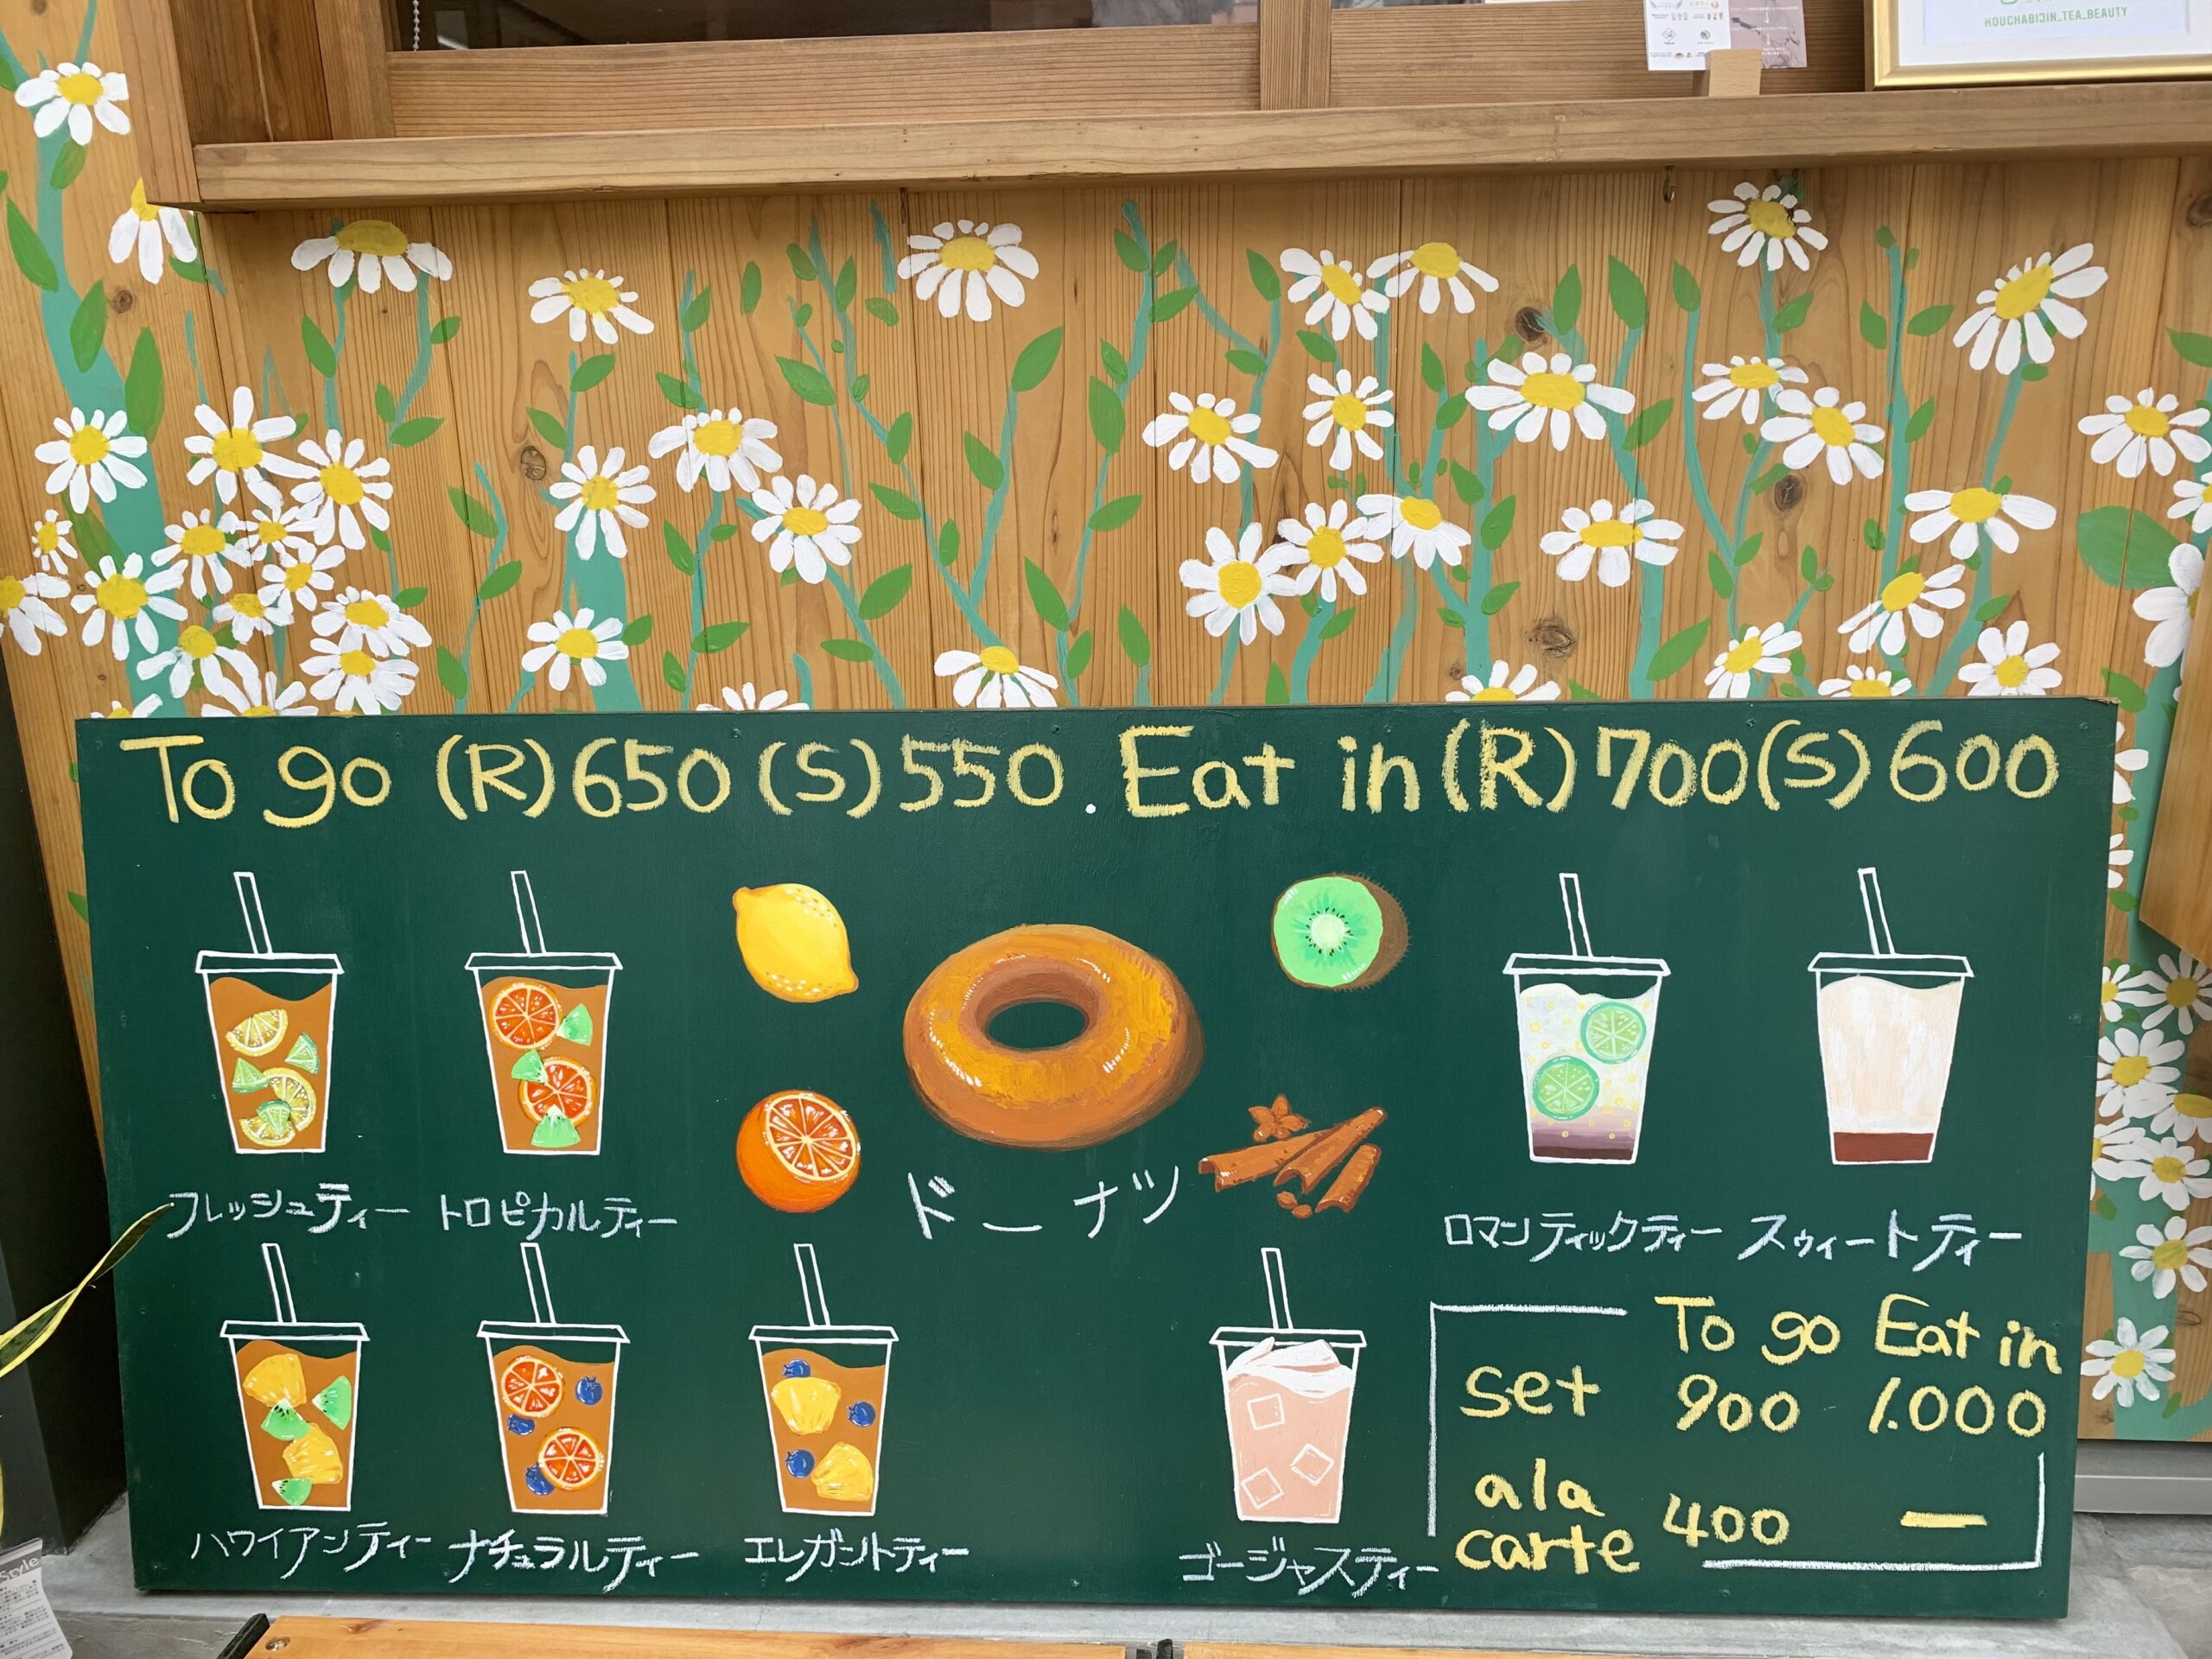 KOUCHABIJIN_TEA_BEAUTY
To go (R)650 (S)550. Eat in (R)700 (S)600
フレッシュティー
トロピカルティー
ドーナツ
ロマンティックティー
スウィートティー
ハワイアンティー
ナチュラルティー
エレガントティー
ゴージャスティー
To go Eat in
set 900 1.000
a la
carte 400 —
Style